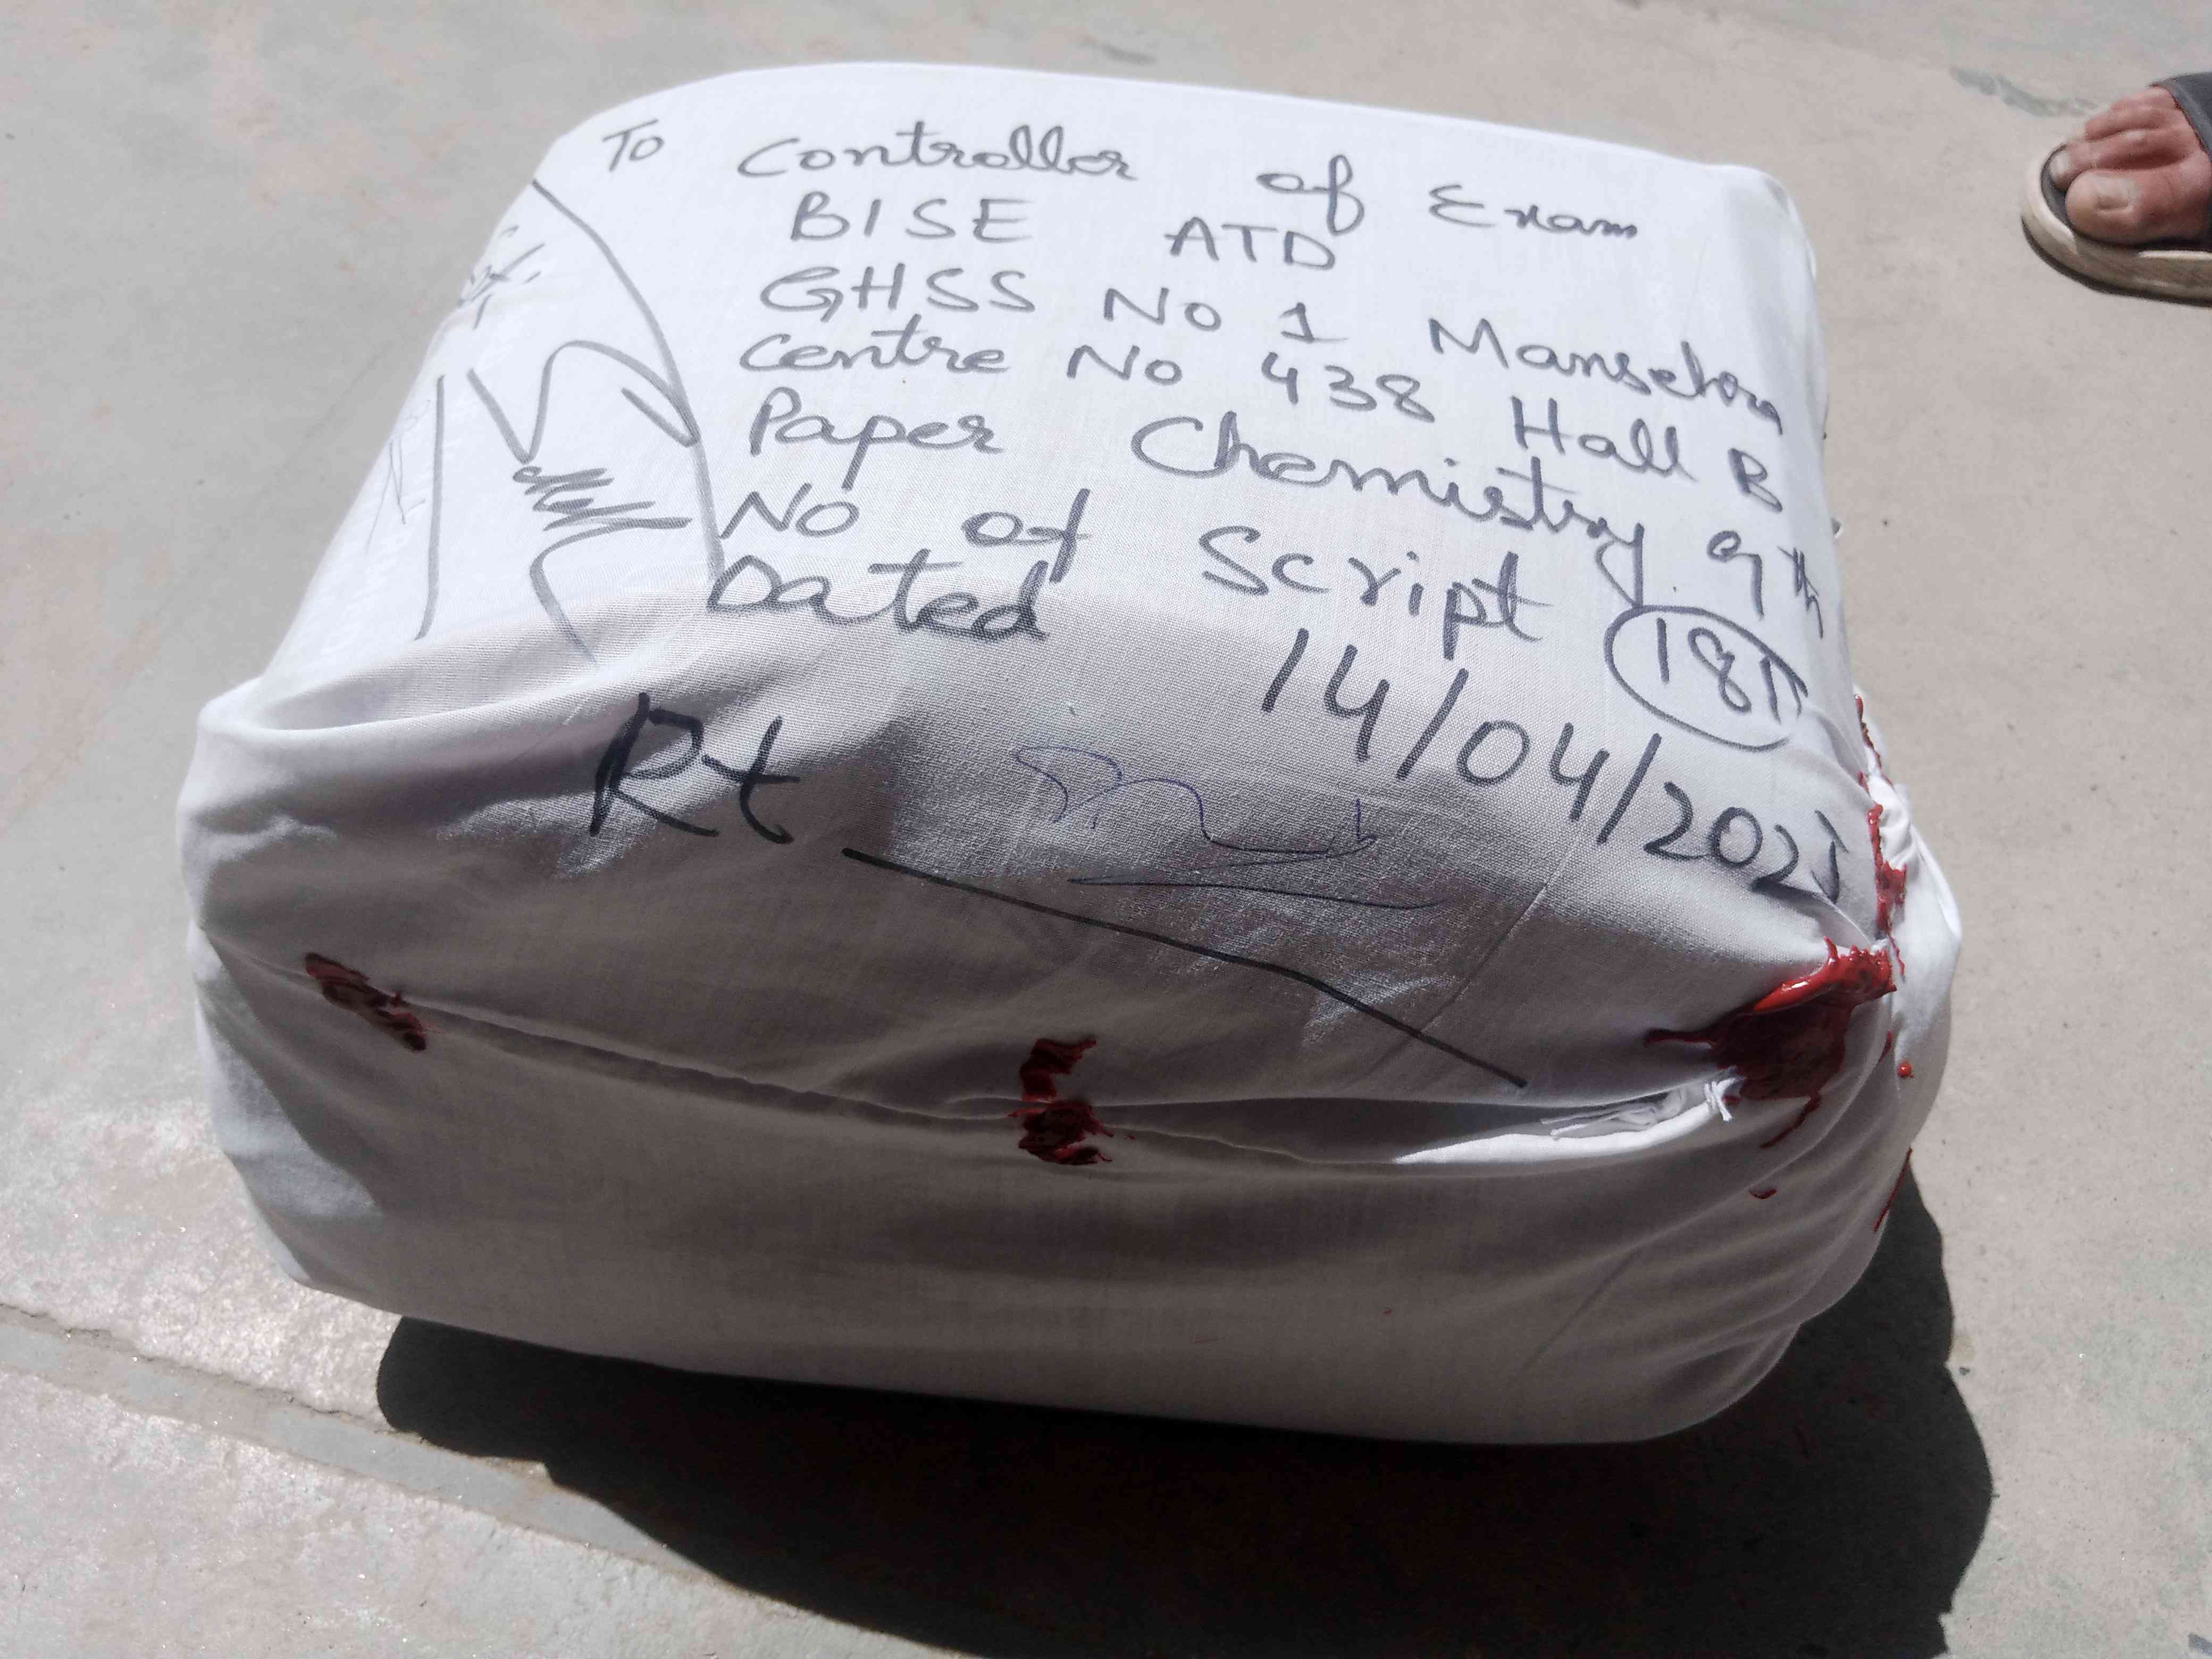 To Controller of Exam
BISE ATD
GHSS No 1 Mansehra
Centre No 438 Hall B
Paper Chemistry 9th
No of Script 181
Dated 14/04/2025
Rt